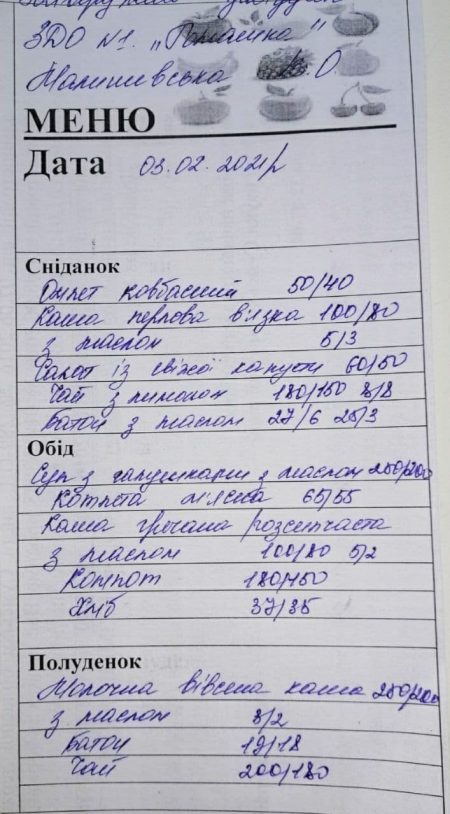 ЗДО №1. „Ромашка"
Малишевська . О.
МЕНЮ
Дата 03.02.2021р
Сніданок
Омлет ковбасний 50/40
Каша перлова в'язка 100/80
з маслом 5/3
Салат із свіжої капусти 60/50
Чай з лимоном 180/150 8/8
Батон з маслом 27/6 25/3
Обід
Суп з галушками з маслом 250/200
Котлета м'ясна 65/55
Каша гречана розсипчаста
з маслом 100/80 5/2
Компот 180/150
Хліб 37/35
Полуденок
Молочна вівсяна каша 250/200
з маслом 3/2
Батон 19/18
Чай 200/180